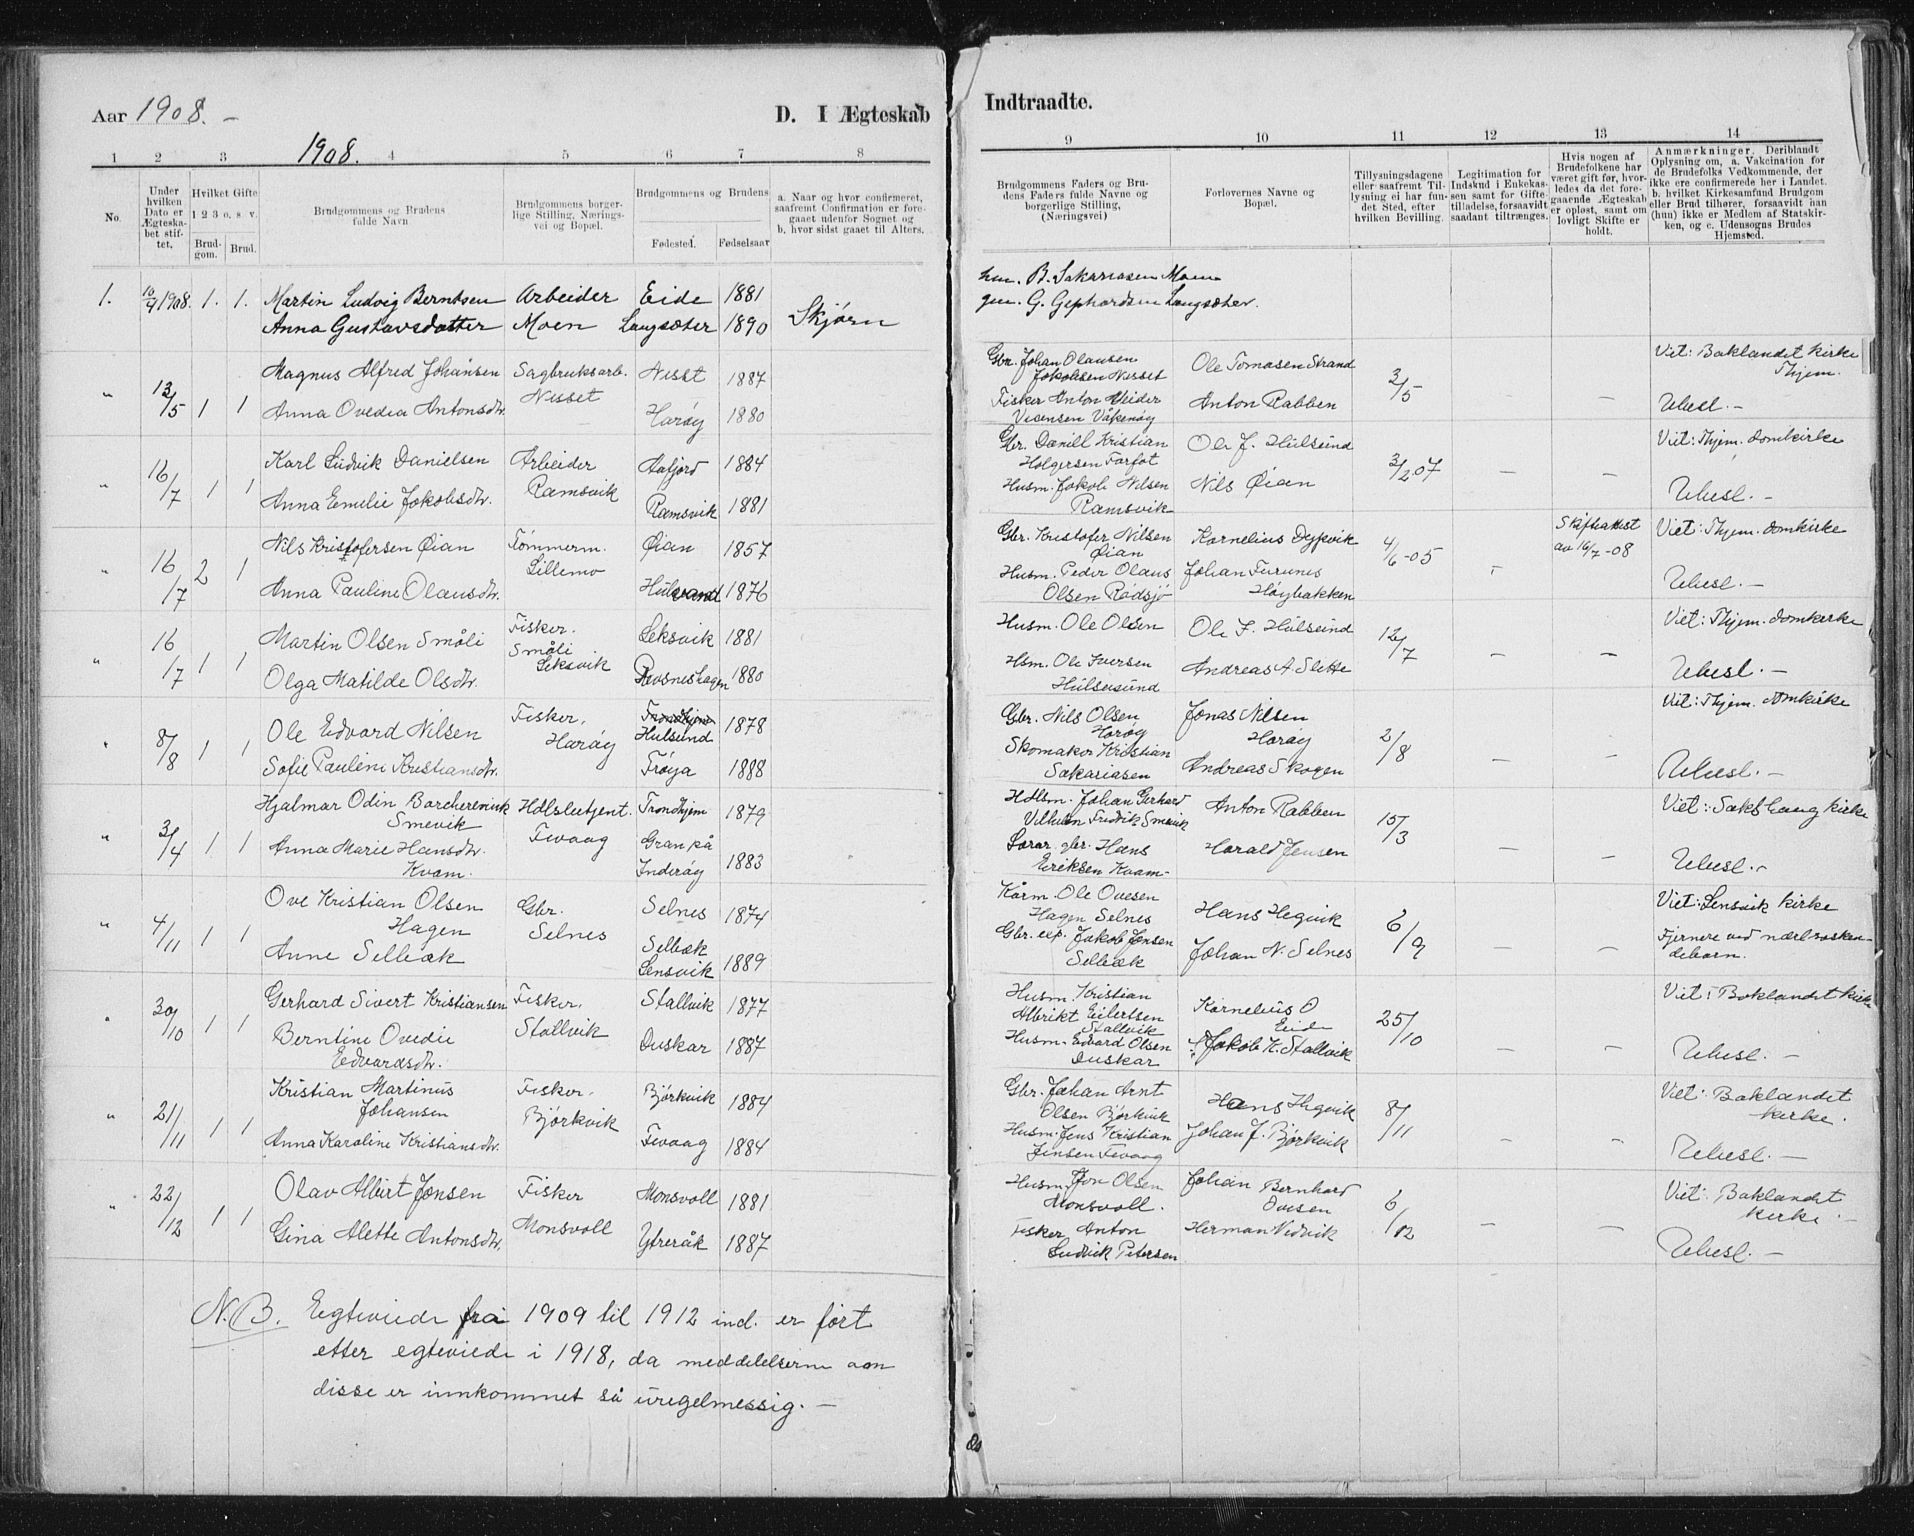 Aar 1908. –
D. I Ægteskab
Indtraadte.
1908.
1 2 3 4 5 6 7 8
9 10 11 12 13 14
No.
Under hvilken Dato er Ægteskabet stiftet,
Hvilket Gifte
1 2 3 o. s. v.
Brudgom. Brud.
Brudgommens og Brudens fulde Navn
Brudgommens borgerlige Stilling, Næringsvei og Bopæl.
Brudgommens og Brudens
Fødested. Fødselsaar
a. Naar og hvor confirmeret, saafremt Confirmation er foregaaet udenfor Sognet og b, hvor sidst gaaet til Alters.
Brudgommens Faders og Brudens Faders fulde Navne og borgerlige Stilling, (Næringsvei)
Forlovernes Navne og Bopæl.
Tillysningsdagene eller saafremt Tillysning ei har fundet Sted, efter hvilken Bevilling.
Legitimation for Indskud i Enkekassen samt for Giftetilladelse, forsaavidt saadant tiltrænges.
Hvis nogen af Brudefolkene har været gift før, hvorledes da det foregaaende Ægteskab er opløst, samt om lovligt Skifte er holdt.
Anmærkninger. Deriblandt Oplysning om, a. Vakcination for de Brudefolks Vedkommende, der ikke ere confirmerede her i Landet. b. hvilket Kirkesamfund Brudgom eller Brud tilhører, forsaavidt han (hun) ikke er Medlem af Statskirken, og c. Udensogns Brudes Hjemsted.
1. 1908. 1. 1. Martin Ludvig Berntsen Arbeider Eide 1881
Anna Gustavsdatter Moen Langsæter 1890 Skjørn
hm. B. Sakariasen Moen
gm. G. Gephardsen Langsæter.
" 12/5 1 1 Magnus Alfred Johansen Sagbruksarb. Nesset 1887
Nesset
Anna Ovedia Antonsdtr. Harøy 1880
Gbr. Johan Olausen Ole Tomasen Strand 3/5 Viet: Baklandet kirke
Jakobsen Nesset Thjem.
Fisker Anton Anton Rabben – Uhesl. –
" 16/7 1 1 Karl Ludvik Danielsen Arbeider Aafjord 1884
Ramsvik
Anna Emelie Jakobsdtr. Ramsvik 1881
Gbr. Daniel Kristian Ole J. Hulsund 3/2 07 Viet: Thjem. domkirke
Holgersen Farfot – –
Husm. Jakob Nilsen Nils Øian Uhesl. –
Ramsvik
" 16/7 2 1 Nils Kristofersen Øian Tømmerm. Øian 1857
Lillemo
Anna Pauline Olausdtr. 1876
Gbr. Kristofer Nilsen Kornelius Dypvik 4/6-05 Skifteattest Viet: Thjem. domkirke
Øian av 16/7-08
Husm. Peder Olaus Johan Furunes – Uhesl. –
Olsen Rødsjø Høybakken
" 16/7 1 1 Martin Olsen Småli Fisker. Leksvik 1881
Småli
Leksvik
Olga Matilde Olsdtr. Revsneshagen 1880
Husm. Ole Olsen Ole J. Hulsund 12/7 Viet: Thjem. domkirke
Hsm. Ole Iversen Andreas A. Slette – – Uhesl. –
Hulsesund
" 8/8 1 1 Ole Edvard Nilsen Fisker. Trondhjem 1878
Harøy Hulsund
Sofie Pauline Kristiansdtr. Frøya 1888
Gbr. Nils Olsen Jonas Nilsen 2/8 Viet: Thjem. domkirke
Harøy Harøy
Skomaker Kristian – –
Sakariasen Andreas Skogen Uhesl. –
" 3/4 1 1 Hjalmar Odin Trondhjem 1879
Smevik Fevaag
Anna Marie Hansdtr. Gran på 1883
Kvam. Inderøy
Hdlsm. Johan Gerhard Anton Rabben 15/3 Viet: Sakshaug kirke
Vilhelm Fredrik Smevik
gbr. Hans Harald Jensen – – Uhesl. –
Eriksen Kvam –
" 4/11 1 1 Ove Kristian Olsen Gbr. Selnes 1874
Hagen Selnes
Anne Selbæk Selbæk 1889
Lensvik
Kårm. Ole Ovesen Hans Hegvik 6/9 Viet: Lensvik kirke
Hagen Selnes
Jakob Jonsen Johan N. Selnes – – Fjernere ved nært søsken-
Selbæk debarn.
" 30/10 1 1 Gerhard Sivert Kristiansen Fisker. Stallvik 1877
Berntine Ovedie Stallvik Duskar 1887
Edvardsdtr.
Husm. Kristian Kornelius O 25/10 Viet: Baklandet kirke
Albrikt Eilertsen Eide
Stallvik
Husm. Edvard Olsen Jakob K. Stallvik – – Uhesl. –
Duskar
" 21/11 1 1 Kristian Martinus Fisker. Bjørkvik 1884
Johansen Bjørkvik
Anna Karoline Kristiansdtr. Fevaag 1884
Gbr. Johan Arnt Hans Hegvik 8/11 Viet: Baklandet
Olsen Bjørkvik kirke.
Husm. Jens Kristian Johan J. Bjørkvik – –
Jensen Fevaag Uhesl. –
" 22/12 1 1 Olav Albert Jonsen Fisker Monsvoll 1881
Monsvoll
Gina Alette Antonsdtr. Ytreråk 1887
Husm. Jon Olsen Johan Bernhard 6/12 Viet: Baklandet
Monsvoll. Ovesen kirke. –
Fisker Anton Herman Vedvik – –
Ludvik Petersen Uhesl. –
N.B. Egteviede fra 1909 til 1912 ind. er ført
etter egteviede i 1918, da meddelelserne om
disse er innkommet så uregelmessig. –